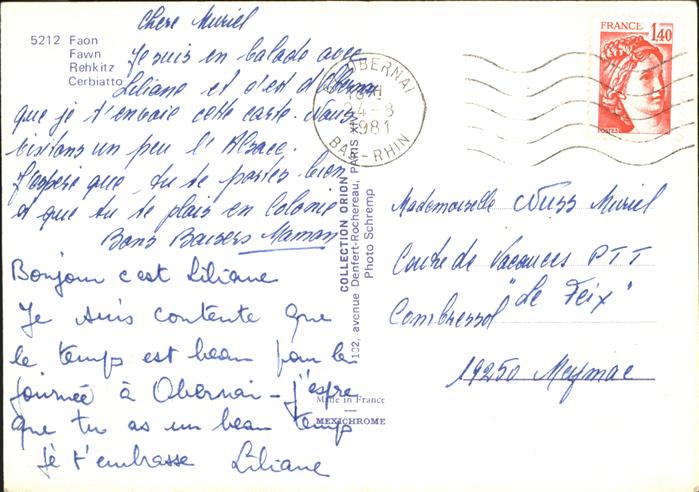 Chere Muriel
5212 Faon
Fawn
Rehkitz
Cerbiatto
Je suis en balade avec
Liliane et c'est d'Obernai
que je t'envoie cette carte. Nous
visitons un peu l'Alsace.
J'espère que tu te portes bien
et que tu te plais en Colonie
Bons Baisers Maman
Bonjour c'est Liliane
Je suis contente que
le temps est beau pour la
journée à Obernai - j'espre
que tu as un beau temps
Je t'embrasse Liliane
COLLECTION ORION
102, avenue Denfert-Rochereau, PARIS XIV
Photo Schremp
Made in France
MEXICHROME
OBERNAI
24-8
1981
BAS-RHIN
FRANCE
1,40
POSTES
Mademoiselle Nuss Muriel
Centre de Vacances PTT
"Le Feix"
Combressol
19250 Meymac